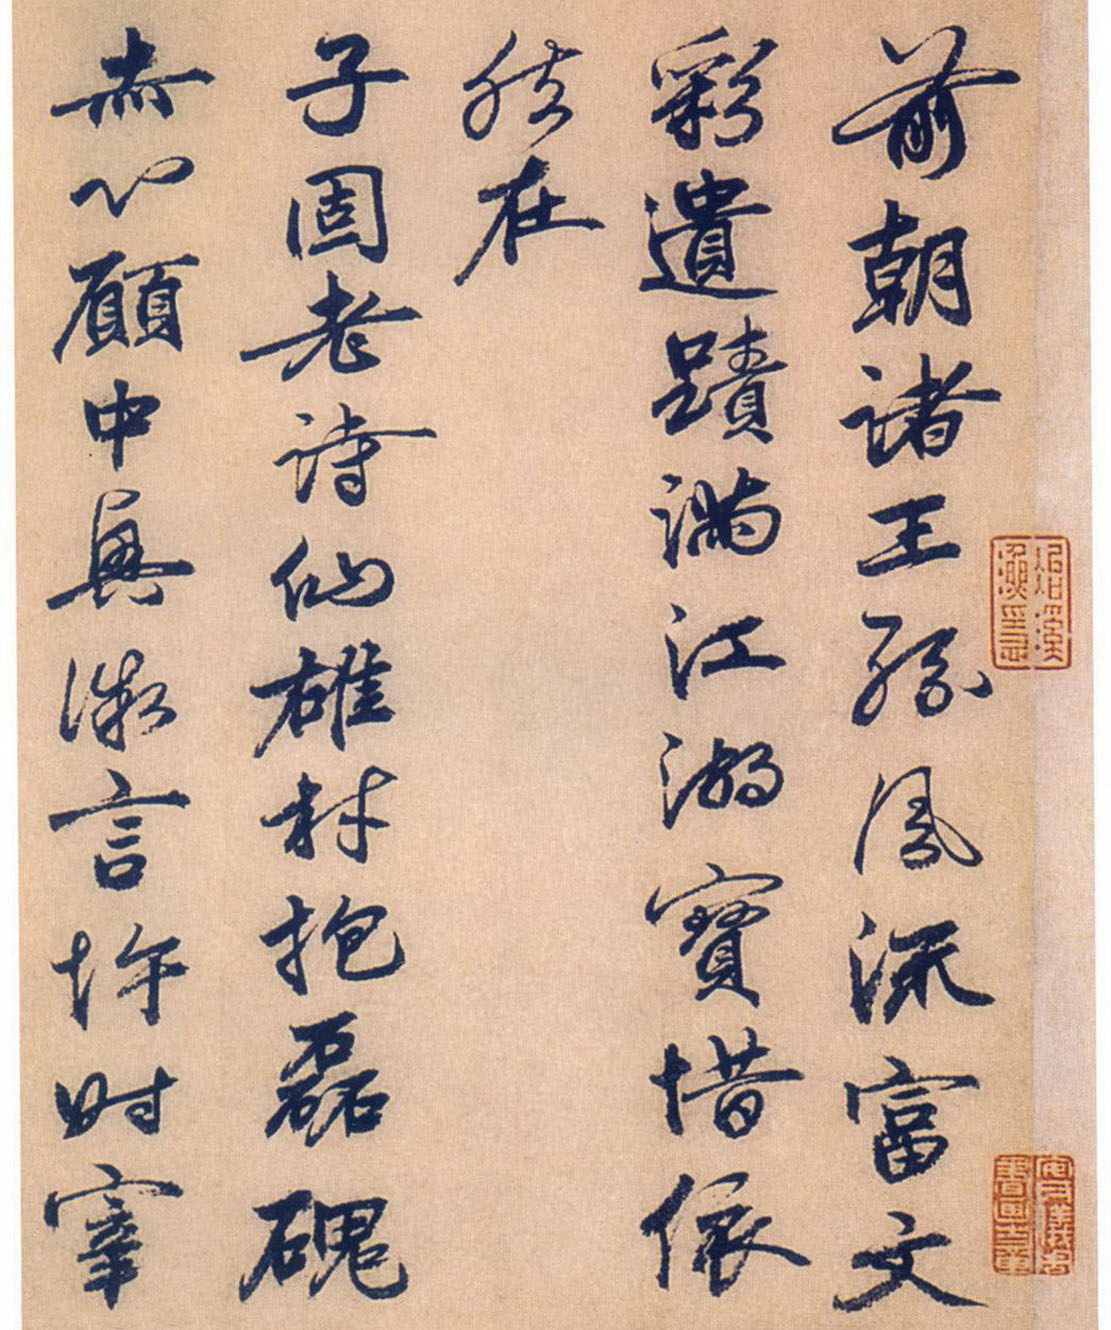 前朝諸王孫風流富文
彩遺蹟滿江湖寶惜依
然在
子固老詩仙雄材抱磊磈
赤心願中興微言忤时宰